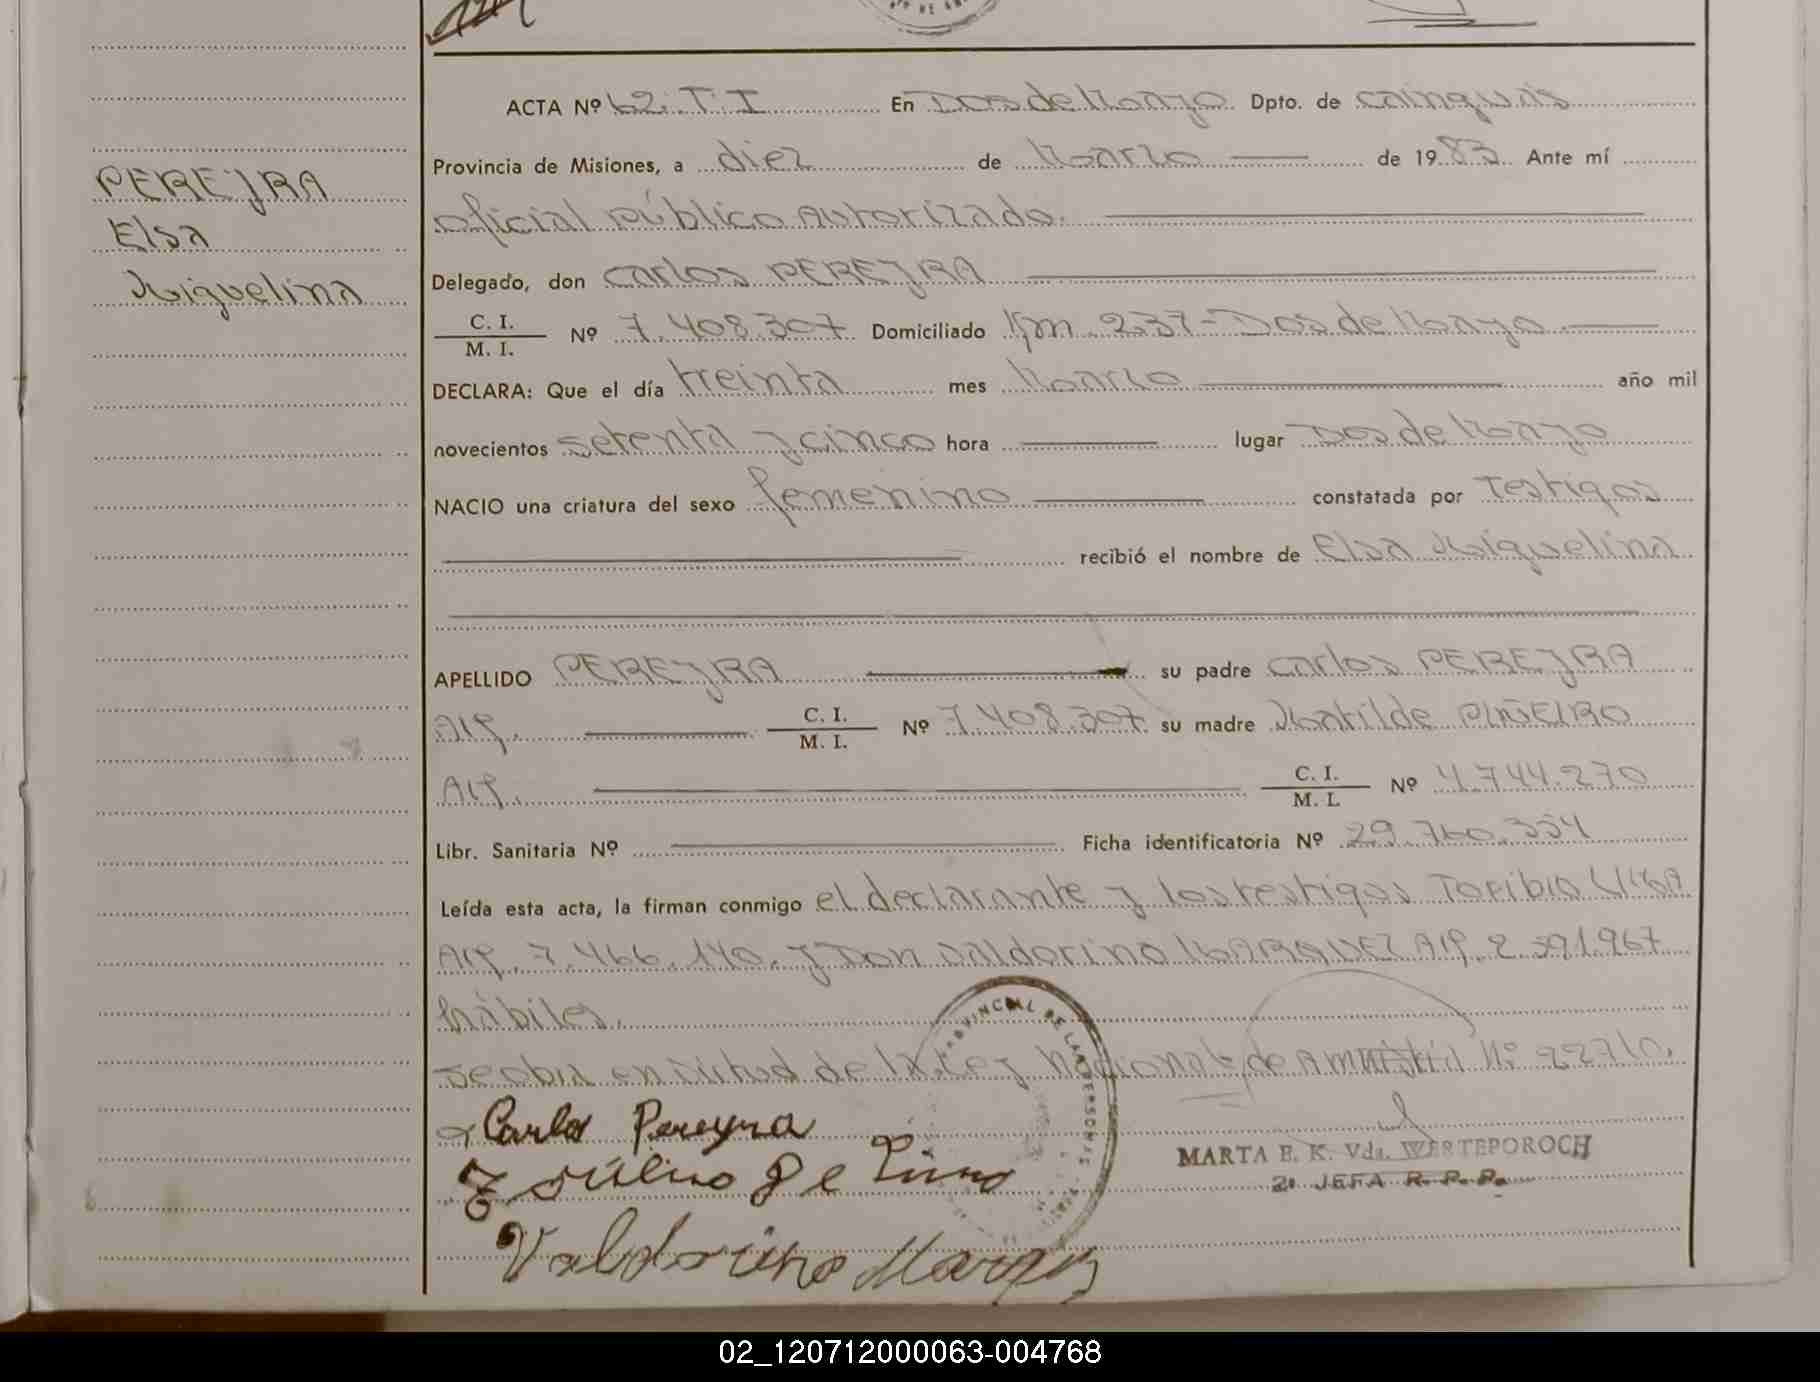 ACTA Nº 62. T. I En Dos de Mayo. Dpto. de Cainguás
Provincia de Misiones, a diez de Marzo de 1983. Ante mí
oficial público Autorizado.
PEREJRA
Elsa
Miguelina
Delegado, don Carlos PEREJRA
C. I. / M. I. Nº 7.408.307 Domiciliado Km. 237-Dos de Mayo.
DECLARA: Que el día treinta mes Marzo año mil
novecientos setenta y cinco hora lugar Dos de Mayo
NACIO una criatura del sexo femenino constatada por Testigos
recibió el nombre de Elsa Miguelina
APELLIDO PEREJRA su padre Carlos PEREJRA
Arg. C. I. / M. I. Nº 7.408.307 su madre Matilde PIÑEIRO
Arg. C. I. / M. I. Nº 4.744.270
Libr. Sanitaria Nº Ficha identificatoria Nº 29.760.354
Leída esta acta, la firman conmigo el declarante y los testigos Toribio
Arg. 7.466.140. y Don Valdorino MARQUEZ Arg. 2.591.967
hábiles.
se obra en virtud de la Ley Nacional de Amnistía Nº 22710.
Carlos Pereyra
MARTA E. K. Vda. WERTEPOROCH
2º JEFA R. P. P.
Valdorino
PROVINCIAL DE LAS PERSONAS
02_120712000063-004768